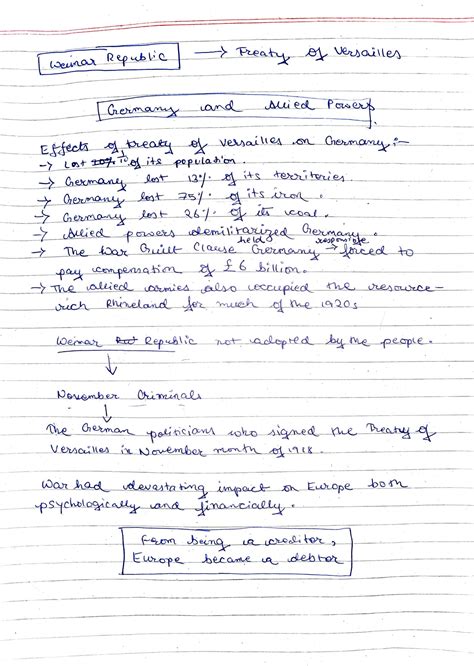 Weimar Republic → Treaty of Versailles
Germany and Allied Powers
Effects of treaty of versailles on Germany:-
→ Lost 10% of its population.
→ Germany lost 13% of its territories.
→ Germany lost 75% of its iron.
→ Germany lost 26% of its coal.
→ Allied powers demilitarized Germany.
→ The War Guilt Clause held Germany responsible forced to
pay compensation of £6 billion.
→ The allied armies also occupied the resource-
rich Rhineland for much of the 1920s
Weimar Republic not adopted by the people.
↓
November Criminals
↓
The German politicians who signed the Treaty of
Versailles in November month of 1918.
War had devastating impact on Europe both
psychologically and financially.
From being a creditor,
Europe became a debtor